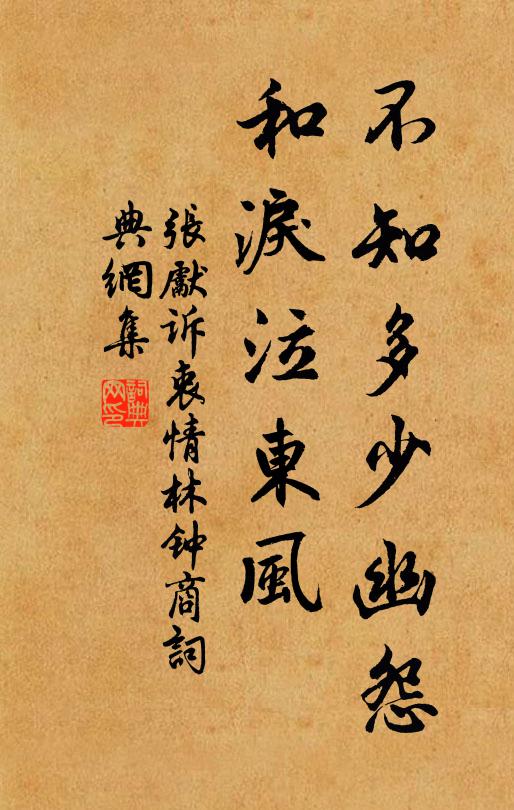 不知多少幽怨
和淚泣東風
張獻訴衷情林钟商詞
典網集
詞典网印